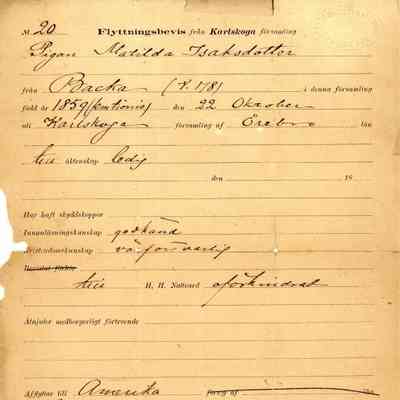 № 20 Flyttningsbevis från Karlskoga församling
Pigan Matilda Isaksdotter
från Backa (s. 178) i denna församling
född år 1859 (femtionio) den 22 Oktober
uti Karlskoga församling af Örebro län
till äktenskap ledig
den 18
Har haft skyddskoppor
Innanläsningskunskap godkänd
Kristendomskunskap försvarlig
till H. H. Nattvard oförhindrad
Åtnjuter medborgerligt förtroende
Afflyttar till Amerika